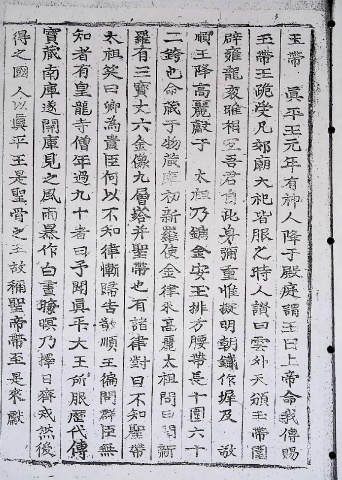 玉帶 眞平王元年有神人降于殿庭謂王曰上帝命我傳賜
玉帶王跪受凡郊廟大祀皆服之時人讃曰雲外天頒玉帶圍
辟雍龍袞雅相宜吾君自此身彌重惟擬明朝鐵作墀及 敬
順王降高麗獻于 太祖乃鐫金安玉排方腰帶長十圍六十
二銙也命藏于物藏庫初新羅使金律來高麗太祖問曰聞新
羅有三寶丈六金像九層塔并聖帶也有諸律對曰不知聖帶
太祖笑曰卿為貴臣何以不知律慚歸告敬順王徧問群臣無
知者有皇龍寺僧年過九十者曰予聞眞平大王所服歷代傳
寶藏南庫遂開庫見之風雨暴作白晝曀暝乃擇日齋戒然後
得之國人以眞平王是聖骨之王故稱聖帝帶至是來獻